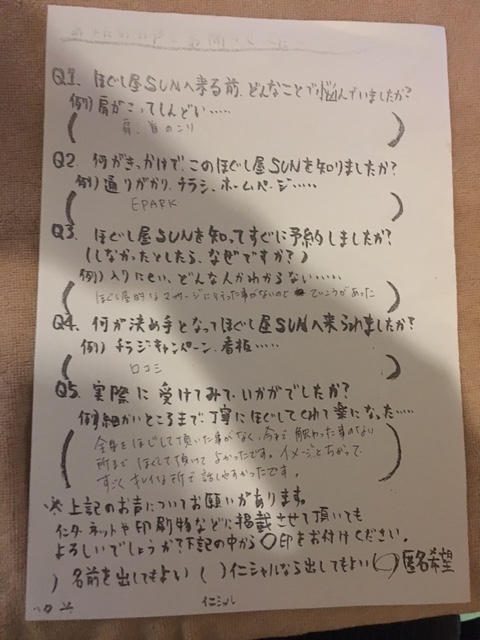 Q1. ほぐし屋SUNへ来る前、どんなことで悩んでいましたか?
例)肩がこってしんどい……
肩、首のこり
Q2. 何がきっかけで、このほぐし屋SUNを知りましたか?
例)通りがかり、チラシ、ホームページ……
EPARK
Q3. ほぐし屋SUNを知ってすぐに予約しましたか?
(しなかったとしたら、なぜですか?)
例)入りにくい、どんな人かわからない……
ほぐし屋的なマッサージに行った事がないので ていこうがあった
Q4. 何が決め手となってほぐし屋SUNへ来られましたか?
例)チラシキャンペーン、看板……
口コミ
Q5. 実際に受けてみて、いかがでしたか?
例)細かいところまで、丁寧にほぐしてくれて楽になった……
全身をほぐして頂いた事がなく、今まで触わった事のない
所まで ほぐして頂けて よかったです。イメージとちがって
すごくキレイな所で話しやすかったです。
※上記のお声についてお願いがあります。
インターネットや印刷物などに掲載させて頂いても
よろしいでしょうか?下記の中から○印をお付けください。
) 名前を出してもよい ( )イニシャルなら出してもよい (○)匿名希望
イニシャル